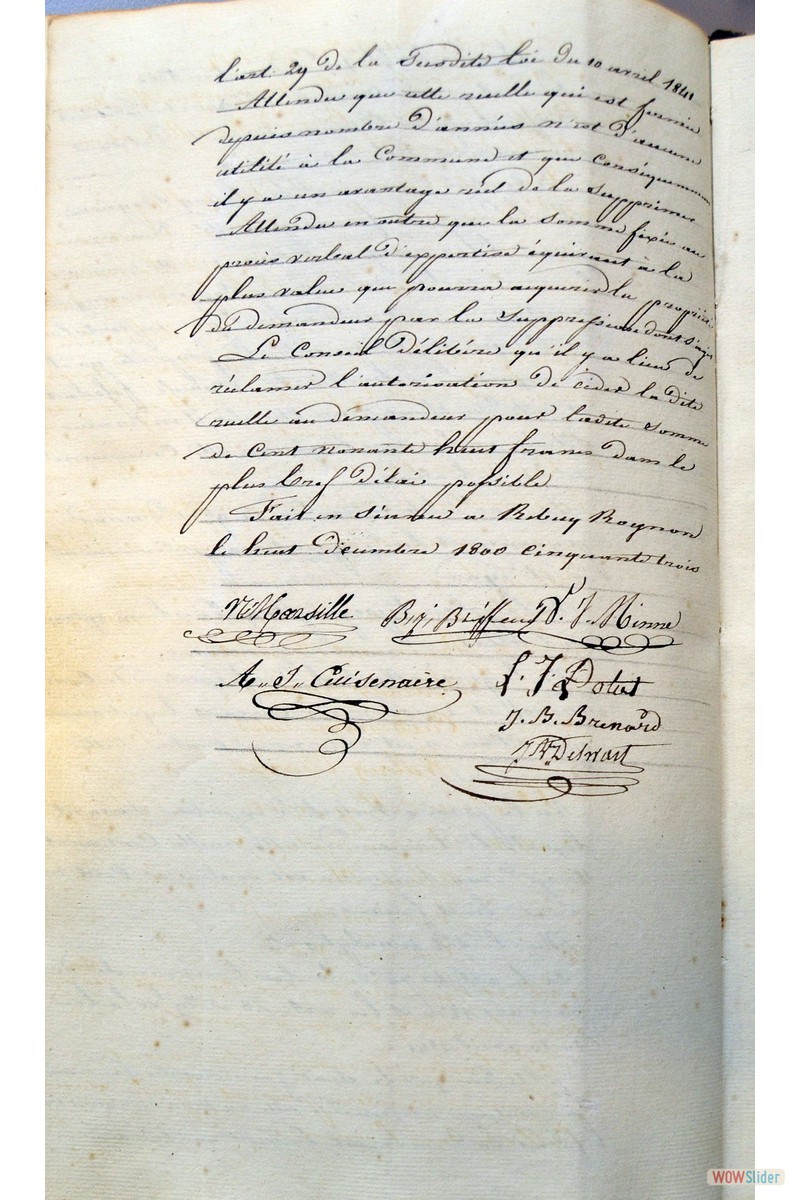 l'art. 29 de la Susdite loi du 10 avril 1841
Attendu que cette ruelle qui est fermée
depuis nombre d'années n'est d'aucune
utilité à la Commune et que conséquemment
il y a un avantage réel de la Supprimer
Attendu en outre que la Somme fixée au
procès verbal d'expertise équivaut à la
plus value que pourra acquérir la propriété
du demandeur par la Suppression dont s'agit
Le Conseil délibère qu'il y a lieu de
réclamer l'autorisation de céder la dite
ruelle au demandeur pour ladite Somme
de Cent nonante huit francs dans le
plus bref délai possible
Fait en Séance à Rebecq Rognon
le huit décembre 1800 cinquante trois
Marsille J. Minne
A. J. Cuisenaire
J. B. Brenard
WOWSlider